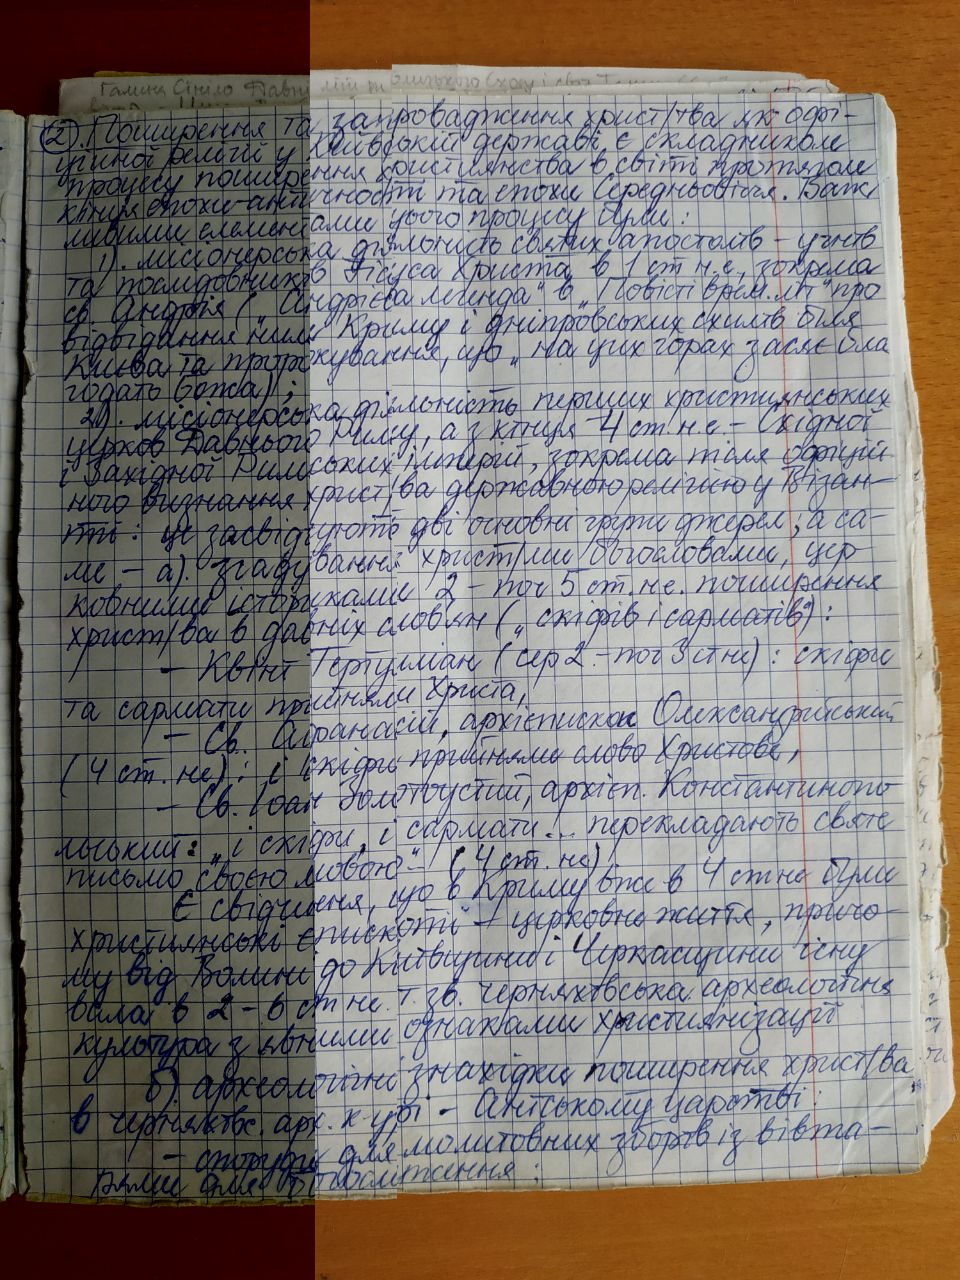 Галина Сініло Давн літ Близького Сходу і
2). Поширення та запровадження христ/тва як офі-
ційної релігії у Київській державі є складником
процесу поширення християнства в світі протягом
кінця епохи античності та епохи Середньовіччя. Важ
ливими елементами цього процесу були:
1). місіонерська діяльність святих апостолів – учнів
та послідовників Ісуса Христа в 1 ст н.е., зокрема
св. Андрія („Андрієва легенда" в „Повісті врем. літ" про
відвідання ним Криму і дніпровських схилів біля
Києва та пророкування, що „на цих горах засяє бла
годать Божа);
2). місіонерська діяльність перших християнських
церков Давнього Риму, а з кінця 4 ст. н.е – Східної
і Західної Римських імперій, зокрема після офіцій
ного визнання христ/ва державною релігією у Візан-
тії: це засвідчують дві основні групи джерел, а са-
ме – а). згадування христ/ми богословами, цер-
ковними істориками 2 – поч 5 ст. не. поширення
христ/ва в давніх словян („скіфів і сарматів"):
– Квінт Тертулліан (сер 2. – поч 3 ст не): скіфи
та сармати прийняли Христа,
– Св. Афанасій, архієпископ Олександрійський
(4 ст. не): і скіфи прийняли слово Христове,
– Св. Іоан Золотоустий, архієп. Константинопо
льський: „і скіфи, і сармати... перекладають святе
письмо своєю мовою" (4 ст. не)
Є свідчення, що в Криму вже в 4 ст не були
християнські єпископії – церковне життя, причо-
му від Волині до Київщини і Черкасщини існу
вала в 2 – 6 ст не. т. зв. черняхівська археологічна
культура з явними ознаками християнізації
б). археологічні знахідки поширення христ/ва
в черняхівс. арх. к-урі – Антському царстві:
– споруди для молитовних зборів із вівта-
рями для